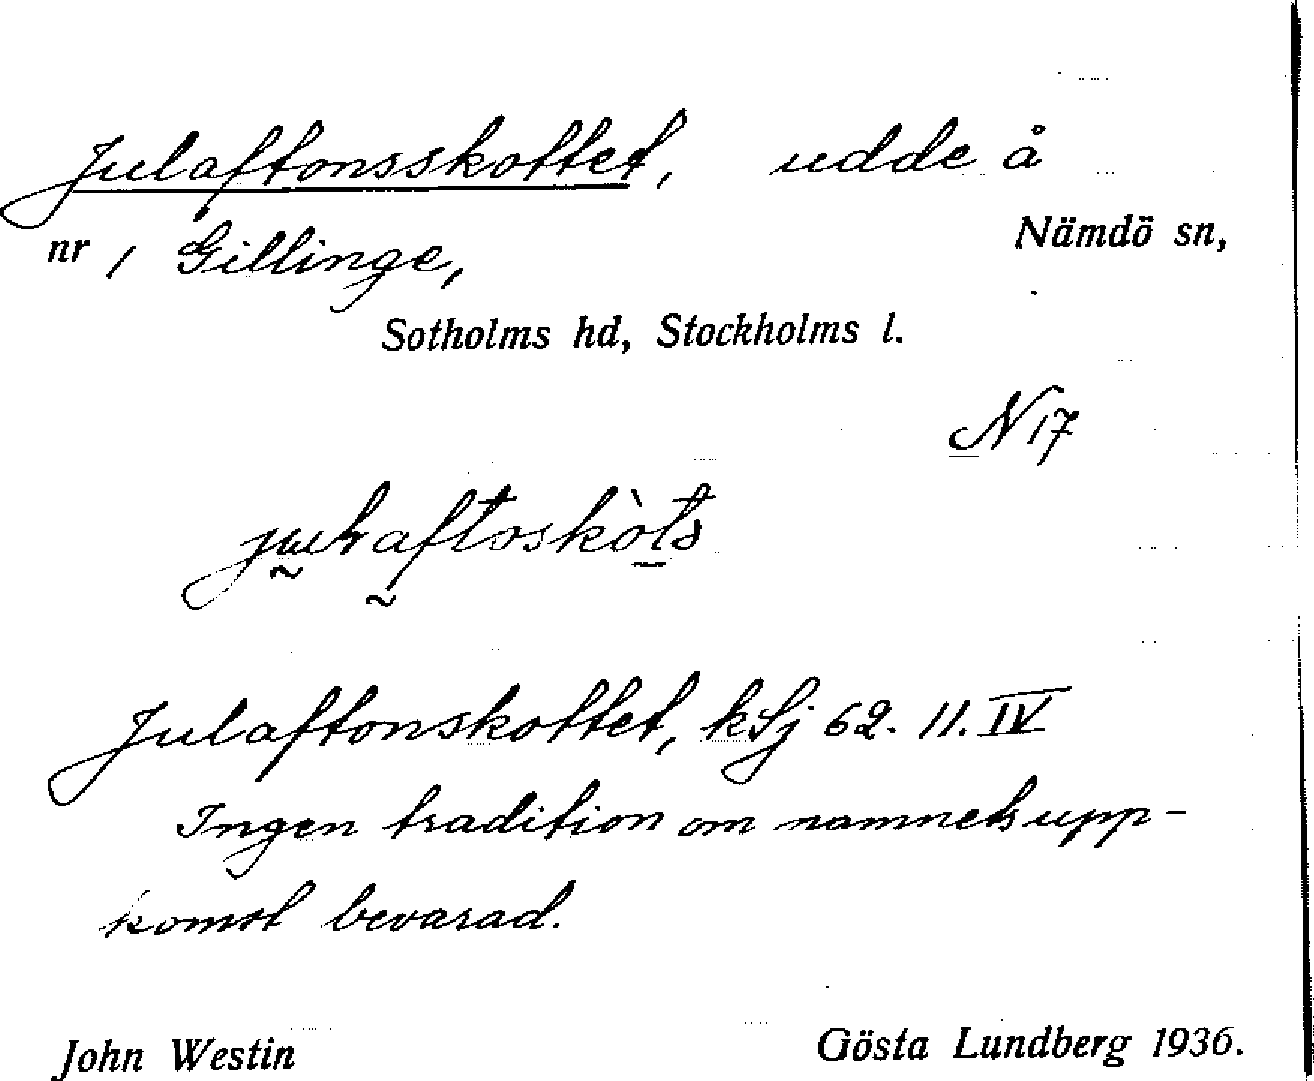 Julaftonsskottet, udde å
nr 1 Gillinge, Nämdö sn,
Sotholms hd, Stockholms l.
N 17
Julaftonskottet, kSj 62. 11. IV
Ingen tradition om namnets upp-
komst bevarad.
John Westin Gösta Lundberg 1936.